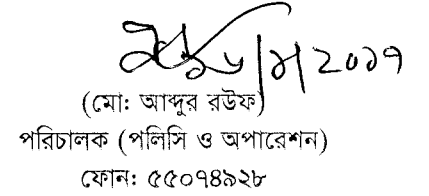 (মো: আব্দুর রউফ)
পরিচালক (পলিসি ও অপারেশন)
ফোন: ৫৫০৭৪৯২৮